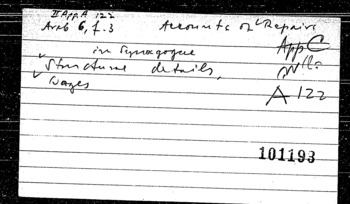 II App. A 122
Arab 6, f. 3 Accounts of Repairs
in Synagogue App C
Structural details,
Wages A 122
101193